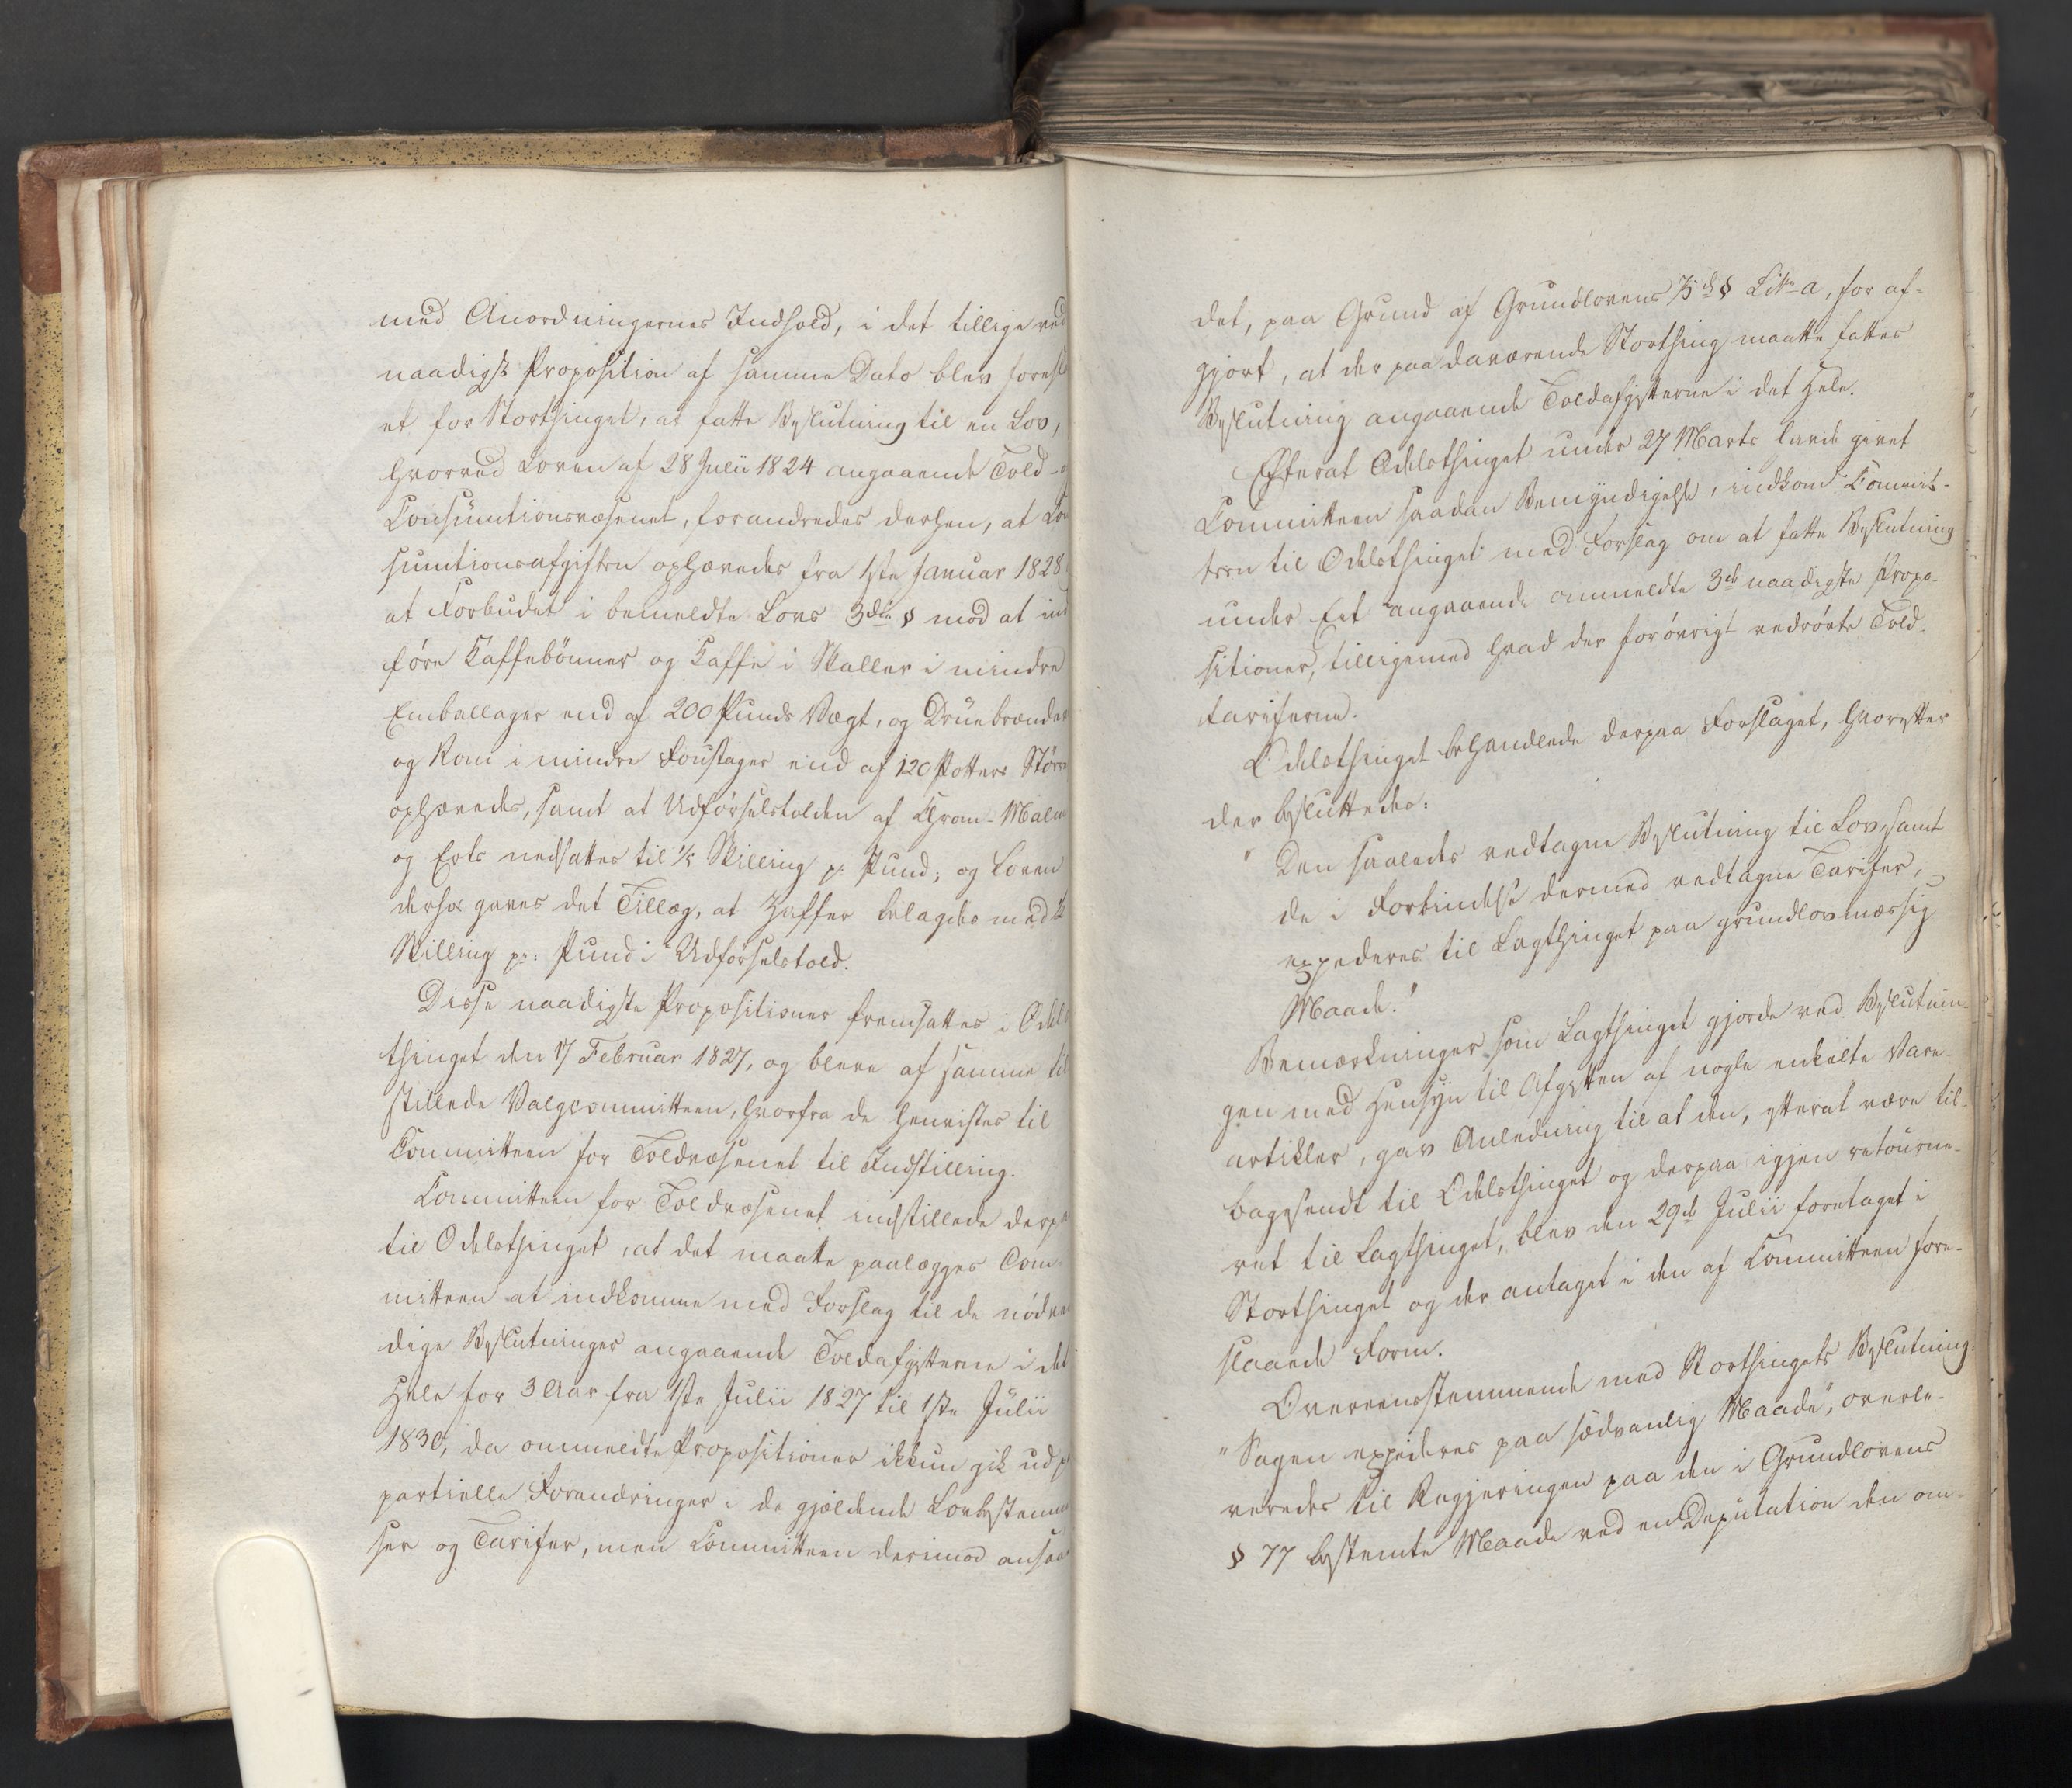 med Anordningernes Indhold, i det tillige ved
naadigst Proposition af samme Dato blev forest
et for Storthinget, at fatte Beslutning til en Lov,
hvorved Loven af 28 Julii 1824 angaaende Told-
Consumtionsvæsenet, forandredes derhen, at Con
sumtionsafgiften ophævedes fra 1ste Januar 1828
at Forbudet i bemeldte Lovs 3die § mod at ind
føre Kaffebønner og Kaffe i Skaller i mindre
Emballager end af 200 Punds Vægt, og Druebrænde
og Rom i mindre Foustager end af 120 Potters Større
ophævedes, samt at Udførselstolden af Chrom-Malm
og Erts nedsattes til 1/5 Skilling pr: Pund; og Loven
derhos gaves det Tillæg, at Zaffer belagdes med
Skilling pr: Pund i Udførselstold.
Disse naadigste Propositioner fremsattes i Odels
thinget den 17 Februar 1827, og bleve af samme til
stillede Valgcommitteen, hvorfra de henvistes til
Committeen for Toldvæsenet til Indstilling.
Committeen for Toldvæsenet indstillede derpa
til Odelsthinget, at det maatte paalægges Com-
mitteen at indkomme med Forslag til de nødven
dige Beslutninger angaaende Toldafgifterne i det
Hele for 3 Aar fra 1ste Julii 1827 til 1ste Julii
1830, da ommeldte Propositioner ikkun gik ud p
partielle Forandringer i de gjældende Lovbestemm
ser og Tarifer, men Committeen derimod ansaa
det, paa Grund af Grundlovens 75de § Litr a, for af-
gjort, at der paa daværende Storthing maatte fattes
Beslutning angaaende Toldafgifterne i det Hele.
Efterat Odelsthinget under 27 Marts havde givet
Committeen saadan Bemyndigelse, indkom Commit-
teen til Odelsthinget med Forslag om at fatte Beslutning
under Eet angaaende ommeldte 3de naadigste Propo-
sitioner, tilligemed hvad der forøvrigt vedrørte Told-
tariferne.
Odelsthinget behandlede derpaa Forslaget, hvorefter
der besluttedes:
" Den saaledes vedtagne Beslutning til Lov, samt
de i Forbindelse dermed vedtagne Tarifer,
expederes til Lagthinget paa grundlovmæssig
Maade."
Bemærkninger som Lagthinget gjorde ved Beslutnin-
gen med Hensyn til Afgiften af nogle enkelte Vare-
artikler, gav Anledning til at den, efterat være til-
bagesendt til Odelsthinget og derpaa igjen retourne-
ret til Lagthinget, blev den 29de Julii foretaget i
Storthinget og der antaget i den af Committeen fore-
slaaede Form.
Overeensstemmende med Storthingets Beslutning:
"Sagen expederes paa sædvanlig Maade", overle-
veredes til Regjeringen paa den i Grundlovens
§ 77 bestemte Maade ved en Deputation den om-